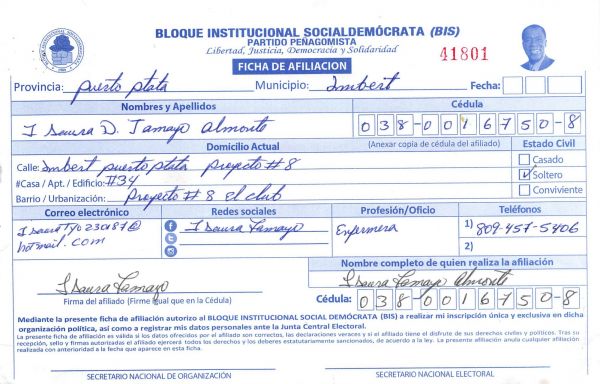 BLOQUE INSTITUCIONAL SOCIALDEMÓCRATA (BIS)
PARTIDO PEÑAGOMISTA
Libertad, Justicia, Democracia y Solidaridad
41801
FICHA DE AFILIACION
Provincia: Puerto Plata Municipio: Imbert Fecha:
Nombres y Apellidos Cédula
Isaura D. Tamayo Almonte 038-0016750-8
Domicilio Actual (Anexar copia de cédula del afiliado) Estado Civil
Calle: Imbert puerto plata proyecto #8 Casado
#Casa / Apt. / Edificio: #34 Soltero
Barrio / Urbanización: Proyecto #8 el club Conviviente
Correo electrónico Redes sociales Profesión/Oficio Teléfonos
IsauraTy0230187@ Isaura Tamayo Enfermera 1) 809-457-5406
hotmail.com 2)
Nombre completo de quien realiza la afiliación
Isaura Tamayo Isaura Tamayo Almonte
Firma del afiliado (Firme igual que en la Cédula) Cédula: 038-0016750-8
Mediante la presente ficha de afiliación autorizo al BLOQUE INSTITUCIONAL SOCIAL DEMÓCRATA (BIS) a realizar mi inscripción única y exclusiva en dicha
organización política, así como a registrar mis datos personales ante la Junta Central Electoral.
La presente ficha de afiliación es válida si los datos ofrecidos por el afiliado son correctos, las declaraciones veraces y si el afiliado tiene el disfrute de sus derechos civiles y políticos. Tras su
recepción, sello y firmas autorizadas el afiliado ejercerá todos los derechos y los deberes estatutariamente sancionados, de acuerdo a la ley. La presente afiliación anula cualquier afiliación
realizada con anterioridad a la fecha que aparece en esta ficha.
SECRETARIO NACIONAL DE ORGANIZACIÓN SECRETARIO NACIONAL ELECTORAL